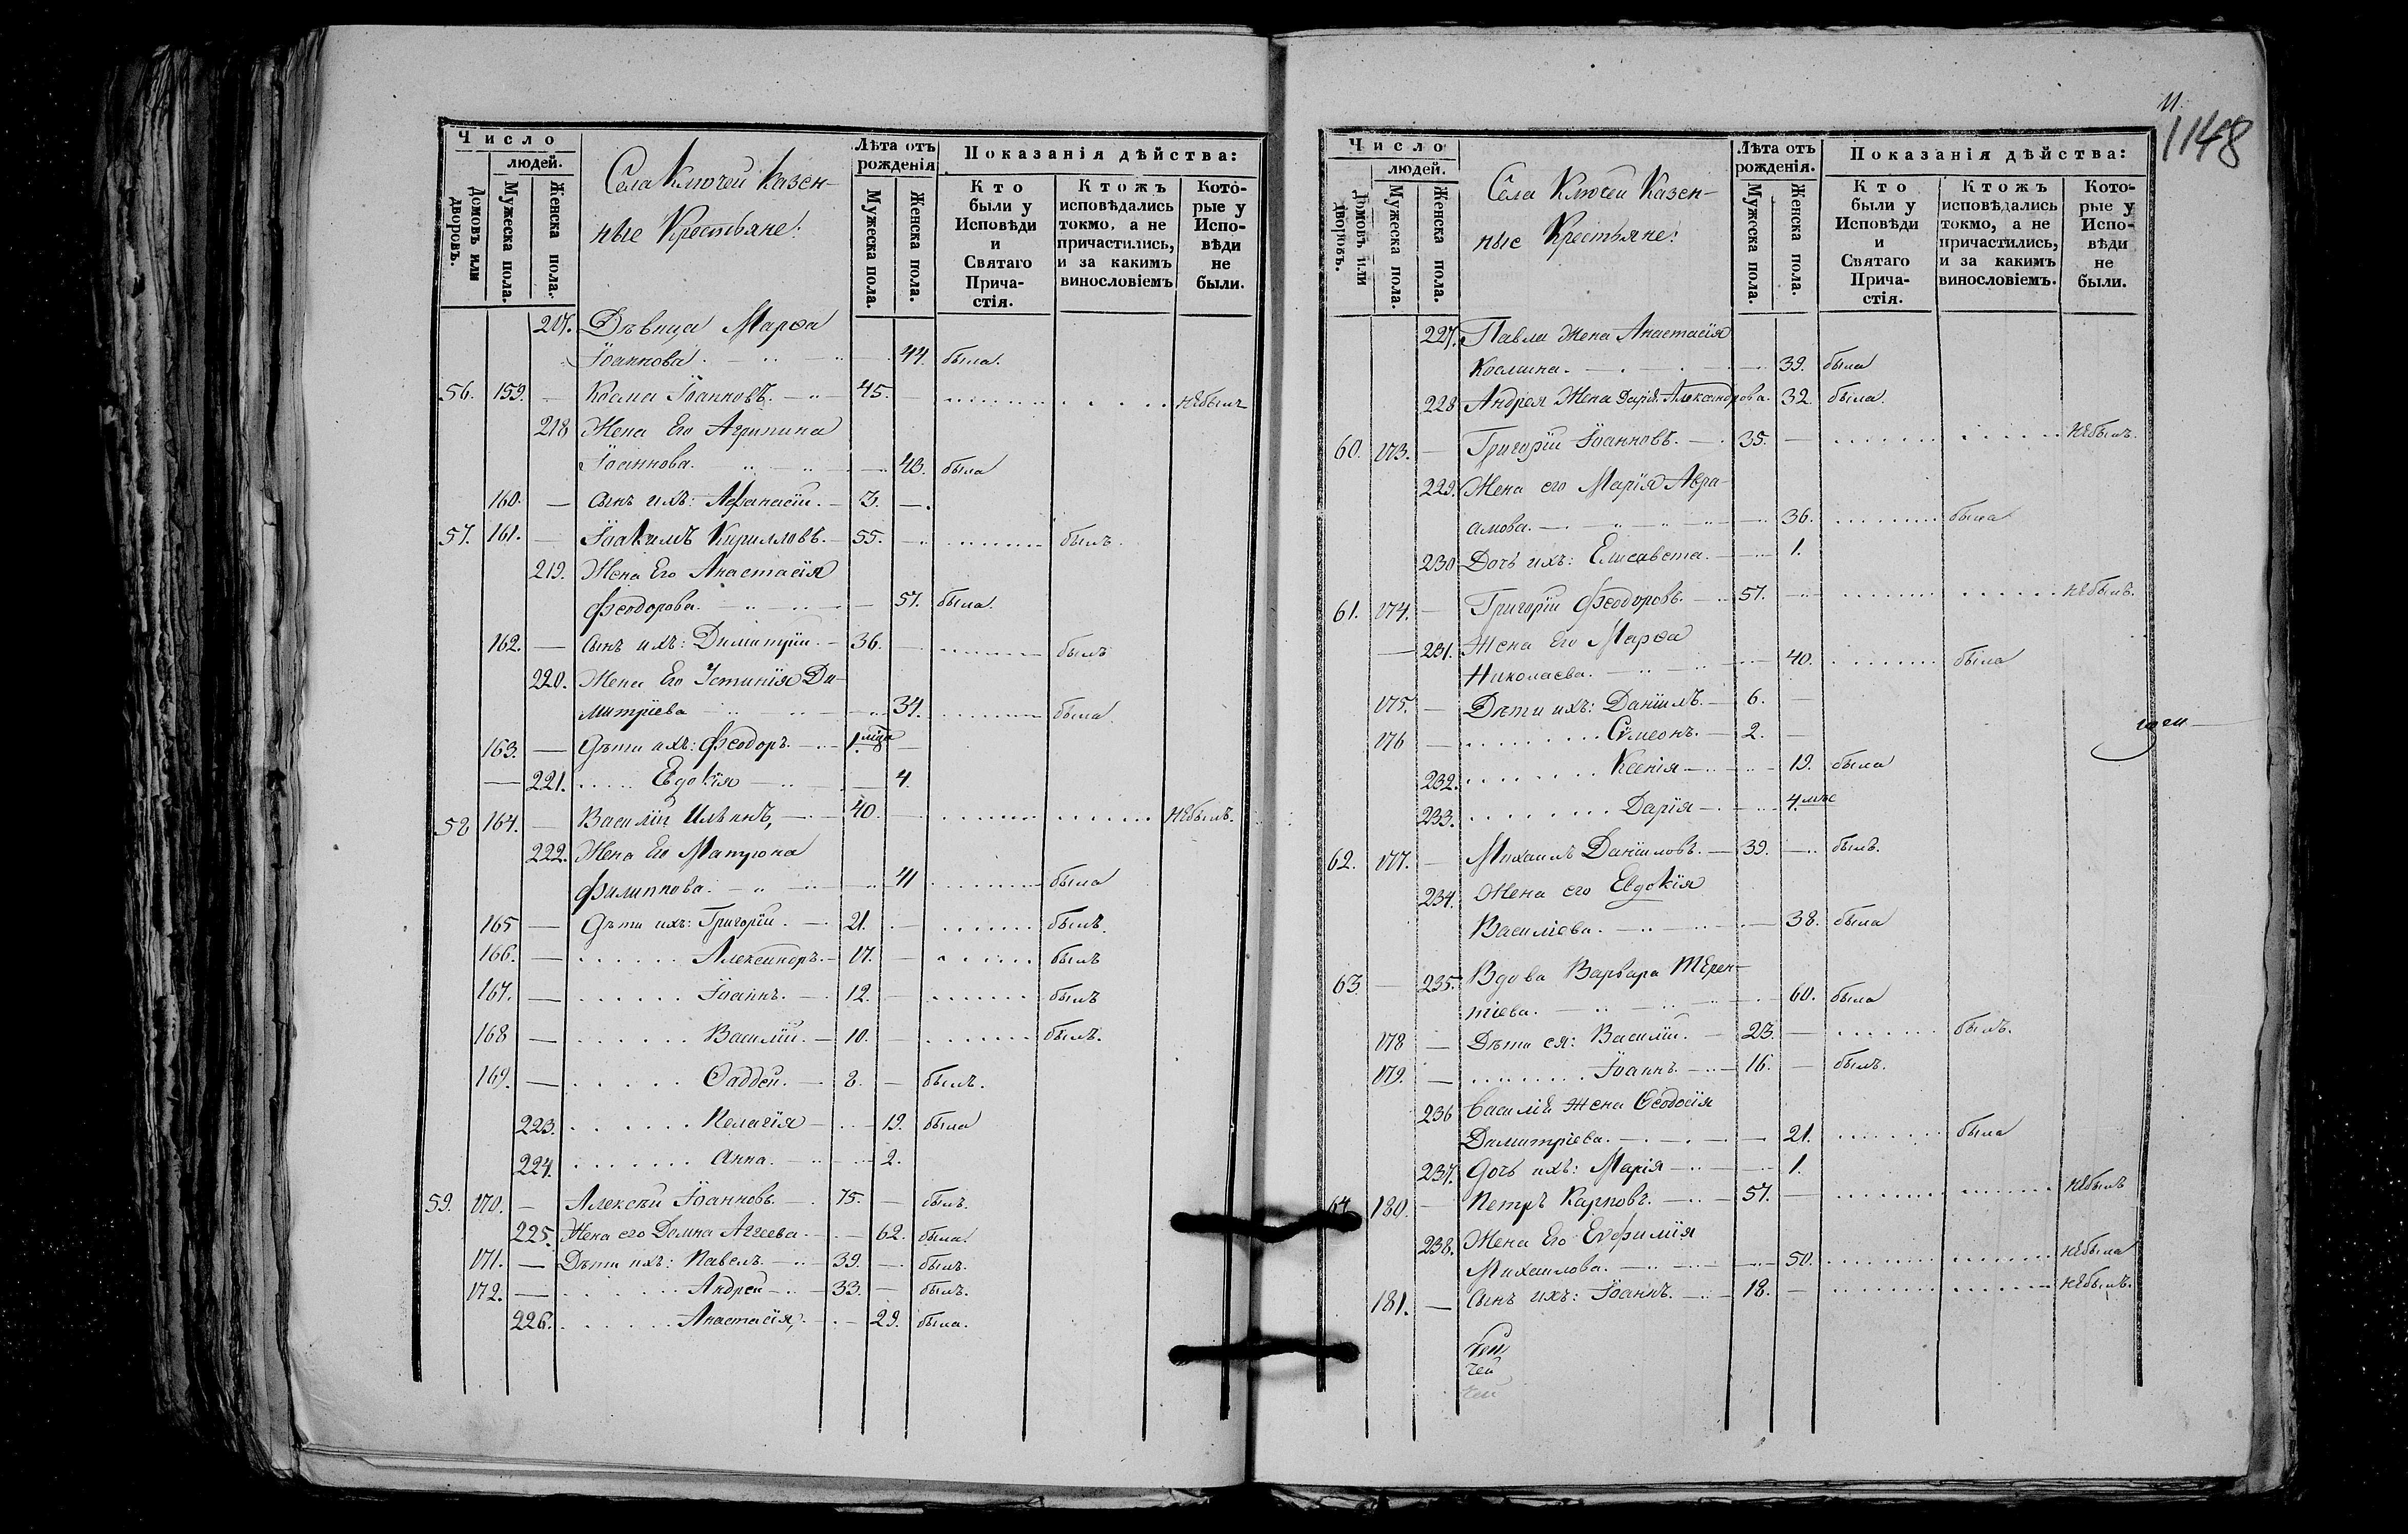 Число
людей.
Домовъ или дворовъ.
Мужеска пола.
Женска пола.
Села Ключей Казен-
ные Крестьяне:
Лѣта отъ рожденія
Мужеска пола.
Женска пола.
Показанія дѣйства:
Кто были у Исповѣди и Святаго Прича-стія.
Ктожъ исповѣдались токмо, а не причастились, и за какимъ винословіемъ
Кото-рые у Испо-вѣди не были.
217. Дѣвица Марѳа
Іоаннова. 44. была.
56. 159. — Косма Іоанновъ. 45. небылъ
218 Жена Его Агрипина
Іоаннова. 43. была
160. — Сынъ ихъ: Афанасій. — 3. —.
57. 161. — Іоакимъ Кирилловъ. — 55. — былъ.
219. Жена Его Анастасія
Феодорова. — 57. была.
162. — Сынъ ихъ: Димитрій. — 36. — былъ
220. Жена Его Устинія Ди-
митріева 34. была.
163. — Дѣти ихъ: Феодоръ. 1.
— 221. Евдокія 4.
58 164. — Василій Ильинъ, 40. — небылъ.
222. Жена Его Матрона
Филиппова. — 41 была
165 — Дѣти ихъ: Григорій. 21. — былъ.
166. — Александръ. — 17. — былъ
167. — Іоаннъ. — 12. — былъ
168 — Василій. — 10. — былъ.
169. — Ѳаддей. — 8. — былъ.
223. Пелагія — 19. была
224. Анна. — 2.
59. 170. — Алексѣй Іоанновъ. — 75. — былъ.
225. Жена его Домна Аггеева. — 62. была
171. — Дѣти ихъ: Павелъ. — 39. — былъ.
172. — Андрей — 33. — былъ.
226. Анастасія, — 29. была.
11.
1148
Число
людей.
Домовъ или дворовъ.
Мужеска пола.
Женска пола.
Села Ключей Казен-
ные Крестьяне:
Лѣта отъ рожденія.
Мужеска пола.
Женска пола.
Показанія дѣйства:
Кто были у Исповѣди и Святаго Прича-стія.
Ктожъ исповѣдались токмо, а не причастились, и за какимъ винословіемъ.
Кото-рые у Испо-вѣди не были.
227. Павла Жена Анастасія
Космина. — 39. была
228 Андрея Жена Дарія Александрова. 32. была.
60. 173. — Григорій Іоанновъ. — 35. — небылъ.
229. Жена его Марія Авра-
амова. — 36. была
230 Дочь ихъ: Елисавета. — 1.
61. 174. — Григорій Феодоровъ. — 57. — небылъ.
— 231. Жена Его Марѳа
Николаева. — 40. была
175. — Дѣти ихъ: Даніилъ. — 6. —
176 — Сѵмеонъ. — 2. —
232. Ксенія — 19. была
233. Дарія — 4.
62. 177. — Михаилъ Даніиловъ. — 39. — былъ.
234. Жена его Евдокія
Василіева. — 38. была
63 — 235. Вдова Варвара Терен-
тіева. — 60. была
178 — Дѣти ея: Василій. — 23. — былъ.
179. — Іоаннъ. — 16. — былъ.
236 Василія Жена Ѳеодосія
Димитріева. — 21. была
237. Дочь ихъ: Марія — 1.
64 180. — Петръ Карповъ. — 57. — небылъ
238. Жена Его Евфимія
Михаилова. — 50. небыла
181. — Сынъ ихъ: Іоаннъ. — 18. — небылъ.
чей